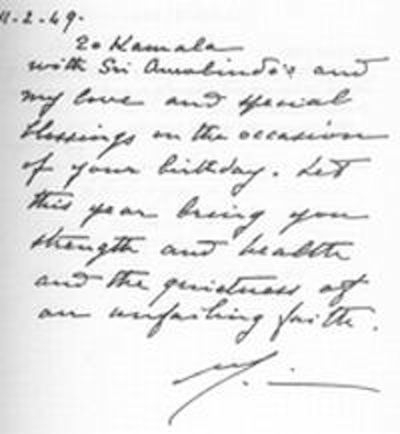 11.2.49.
To Kamala
with Sri Aurobindo's and
my love and special
blessings on the occasion
of your birthday. Let
this year bring you
strength and health
and the quietness of
an unfailing faith.